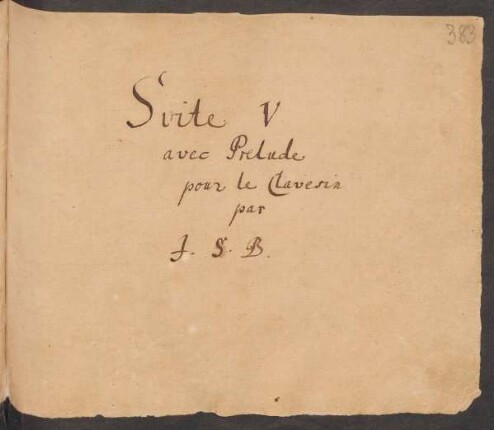 383
Svite V
avec Prelude
pour le Clavesin
par
J. S. B.